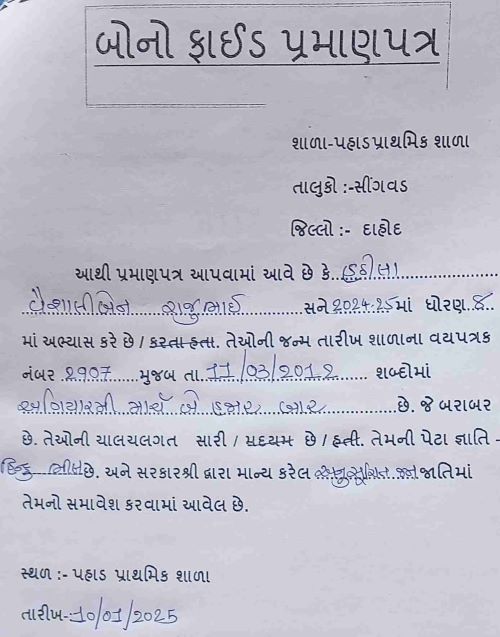 બોનો ફાઈડ પ્રમાણપત્ર
શાળા-પહાડ પ્રાથમિક શાળા
તાલુકો :-સીંગવડ
જિલ્લો :- દાહોદ
આથી પ્રમાણપત્ર આપવામાં આવે છે કે
વૈશાલીબેન રાજુભાઈ સને 2024-25માં ધોરણ 8
માં અભ્યાસ કરે છે / કરતા હતા. તેઓની જન્મ તારીખ શાળાના વયપત્રક
નંબર 2907 મુજબ તા 11/03/2012 શબ્દોમાં
અગિયારમી માર્ચ બે હજાર બાર છે. જે બરાબર
છે. તેઓની ચાલચલગત સારી / મધ્યમ છે / હતી. તેમની પેટા જ્ઞાતિ -
હિન્દુ ભીલ છે. અને સરકારશ્રી દ્વારા માન્ય કરેલ અનુસૂચિત જન જાતિમાં
તેમનો સમાવેશ કરવામાં આવેલ છે.
સ્થળ :- પહાડ પ્રાથમિક શાળા
તારીખ-:10/01/2025